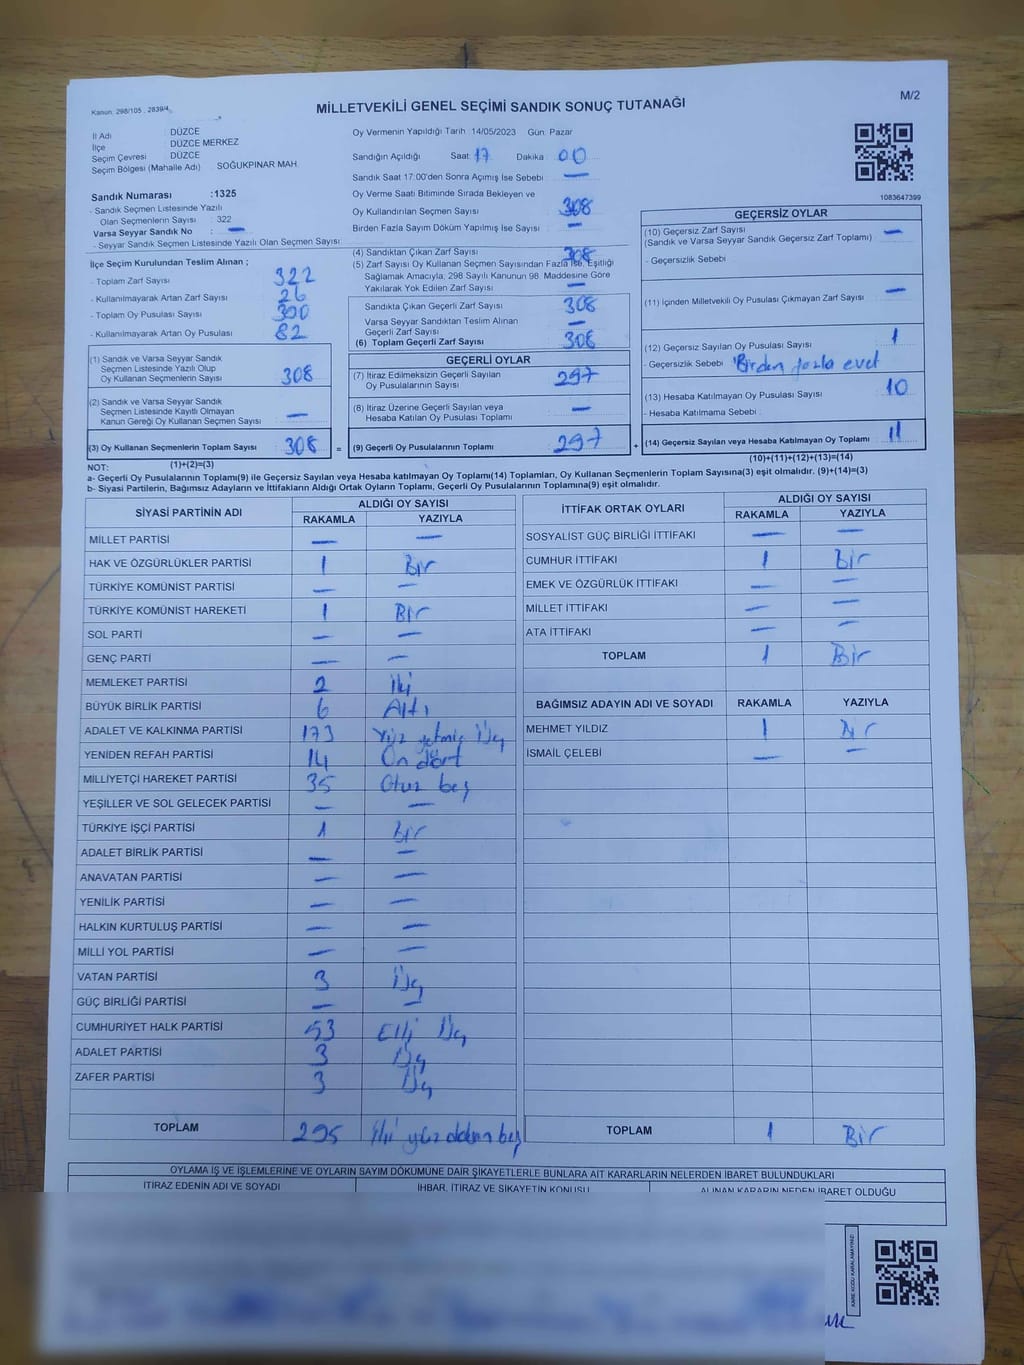 Kanun. 298/105 . 2839/4
MİLLETVEKİLİ GENEL SEÇİMİ SANDIK SONUÇ TUTANAĞI
M/2
İl Adı : DÜZCE
İlçe : DÜZCE MERKEZ
Seçim Çevresi : DÜZCE
Seçim Bölgesi (Mahalle Adı) : SOĞUKPINAR MAH.
Oy Vermenin Yapıldığı Tarih 14/05/2023 Gün: Pazar
Sandığın Açıldığı Saat: 17 Dakika : 00
Sandık Saat 17:00'den Sonra Açımış İse Sebebi : —
Oy Verme Saati Bitiminde Sırada Bekleyen ve
Oy Kullandırılan Seçmen Sayısı : 308
Birden Fazla Sayım Döküm Yapılmış İse Sayısı : —
1083647399
Sandık Numarası :1325
- Sandık Seçmen Listesinde Yazılı
Olan Seçmenlerin Sayısı : 322
Varsa Seyyar Sandık No : —
- Seyyar Sandık Seçmen Listesinde Yazılı Olan Seçmen Sayısı:
İlçe Seçim Kurulundan Teslim Alınan ;
- Toplam Zarf Sayısı : 322
- Kullanılmayarak Artan Zarf Sayısı : 26
- Toplam Oy Pusulası Sayısı :
- Kullanılmayarak Artan Oy Pusulası : 82
(1) Sandık ve Varsa Seyyar Sandık
Seçmen Listesinde Yazılı Olup
Oy Kullanan Seçmenlerin Sayısı : 308
(2) Sandık ve Varsa Seyyar Sandık
Seçmen Listesinde Kayıtlı Olmayan
Kanun Gereği Oy Kullanan Seçmen Sayısı : —
(3) Oy Kullanan Seçmenlerin Toplam Sayısı : 308 =
(4) Sandıktan Çıkan Zarf Sayısı : 308
(5) Zarf Sayısı Oy Kullanan Seçmen Sayısından Fazla İse, Eşitliği
Sağlamak Amacıyla; 298 Sayılı Kanunun 98. Maddesine Göre
Yakılarak Yok Edilen Zarf Sayısı : —
Sandıkta Çıkan Geçerli Zarf Sayısı : 308
Varsa Seyyar Sandıktan Teslim Alınan
Geçerli Zarf Sayısı : —
(6) Toplam Geçerli Zarf Sayısı : 308
GEÇERLİ OYLAR
(7) İtiraz Edilmeksizin Geçerli Sayılan
Oy Pusulalarının Sayısı : 297
(8) İtiraz Üzerine Geçerli Sayılan veya
Hesaba Katılan Oy Pusulası Toplamı : —
(9) Geçerli Oy Pusulalarının Toplamı : 297 +
GEÇERSİZ OYLAR
(10) Geçersiz Zarf Sayısı : —
(Sandık ve Varsa Seyyar Sandık Geçersiz Zarf Toplamı)
- Geçersizlik Sebebi :
(11) İçinden Milletvekili Oy Pusulası Çıkmayan Zarf Sayısı : —
(12) Geçersiz Sayılan Oy Pusulası Sayısı : 1
- Geçersizlik Sebebi : Birden fazla evet
(13) Hesaba Katılmayan Oy Pusulası Sayısı : 10
- Hesaba Katılmama Sebebi :
(14) Geçersiz Sayılan veya Hesaba Katılmayan Oy Toplamı : 11
NOT: (1)+(2)=(3)
(10)+(11)+(12)+(13)=(14)
a- Geçerli Oy Pusulalarının Toplamı(9) ile Geçersiz Sayılan veya Hesaba katılmayan Oy Toplamı(14) Toplamları, Oy Kullanan Seçmenlerin Toplam Sayısına(3) eşit olmalıdır. (9)+(14)=(3)
b- Siyasi Partilerin, Bağımsız Adayların ve İttifakların Aldığı Ortak Oyların Toplamı, Geçerli Oy Pusulalarının Toplamına(9) eşit olmalıdır.
SİYASİ PARTİNİN ADI ALDIĞI OY SAYISI
RAKAMLA YAZIYLA
MİLLET PARTİSİ — —
HAK VE ÖZGÜRLÜKLER PARTİSİ 1 Bir
TÜRKİYE KOMÜNİST PARTİSİ — —
TÜRKİYE KOMÜNİST HAREKETİ 1 Bir
SOL PARTİ — —
GENÇ PARTİ — —
MEMLEKET PARTİSİ 2 İki
BÜYÜK BİRLİK PARTİSİ 6 Altı
ADALET VE KALKINMA PARTİSİ 173 Yüz yetmiş Üç
YENİDEN REFAH PARTİSİ 14 On dört
MİLLİYETÇİ HAREKET PARTİSİ 35 Otuz beş
YEŞİLLER VE SOL GELECEK PARTİSİ — —
TÜRKİYE İŞÇİ PARTİSİ 1 Bir
ADALET BİRLİK PARTİSİ — —
ANAVATAN PARTİSİ — —
YENİLİK PARTİSİ — —
HALKIN KURTULUŞ PARTİSİ — —
MİLLİ YOL PARTİSİ — —
VATAN PARTİSİ 3 Üç
GÜÇ BİRLİĞİ PARTİSİ — —
CUMHURİYET HALK PARTİSİ 53 Elli Üç
ADALET PARTİSİ 3 Üç
ZAFER PARTİSİ 3 Üç
TOPLAM 295 İki yüz doksan beş
İTTİFAK ORTAK OYLARI ALDIĞI OY SAYISI
RAKAMLA YAZIYLA
SOSYALİST GÜÇ BİRLİĞİ İTTİFAKI — —
CUMHUR İTTİFAKI 1 Bir
EMEK VE ÖZGÜRLÜK İTTİFAKI — —
MİLLET İTTİFAKI — —
ATA İTTİFAKI — —
TOPLAM 1 Bir
BAĞIMSIZ ADAYIN ADI VE SOYADI RAKAMLA YAZIYLA
MEHMET YILDIZ 1 Bir
İSMAİL ÇELEBİ — —
TOPLAM 1 Bir
OYLAMA İŞ VE İŞLEMLERİNE VE OYLARIN SAYIM DÖKÜMÜNE DAİR ŞİKAYETLERLE BUNLARA AİT KARARLARIN NELERDEN İBARET BULUNDUKLARI
İTİRAZ EDENİN ADI VE SOYADI İHBAR, İTİRAZ VE ŞİKAYETİN KONUSU ALINAN KARARIN NEDEN İBARET OLDUĞU
KARE KODU KARALAMAYINIZ!